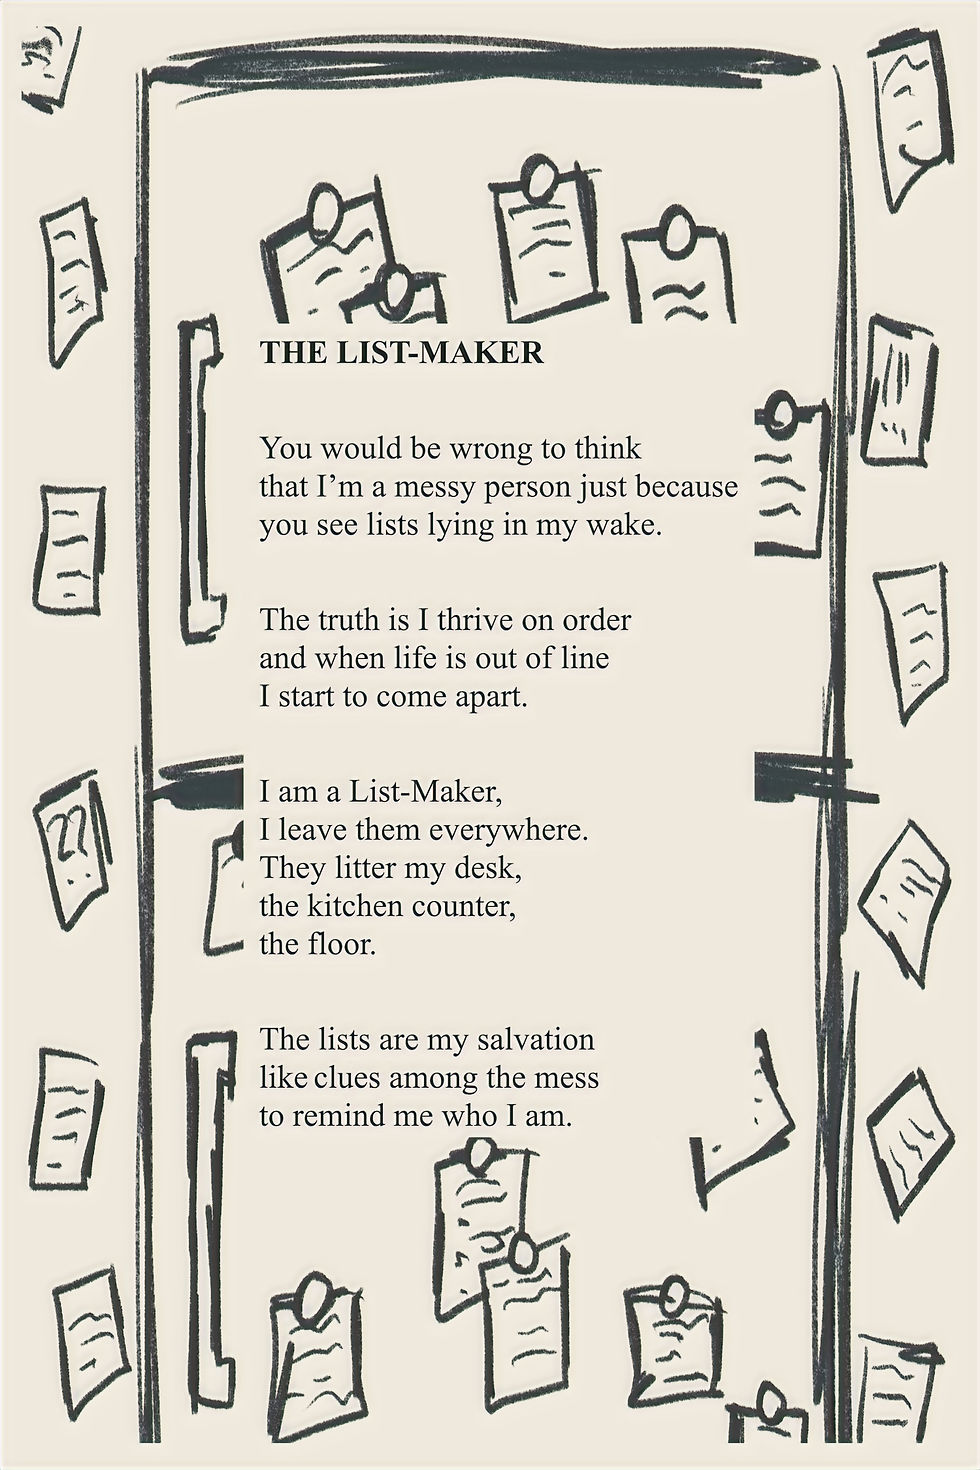 THE LIST-MAKER
You would be wrong to think
that I’m a messy person just because
you see lists lying in my wake.
The truth is I thrive on order
and when life is out of line
I start to come apart.
I am a List-Maker,
I leave them everywhere.
They litter my desk,
the kitchen counter,
the floor.
The lists are my salvation
like clues among the mess
to remind me who I am.